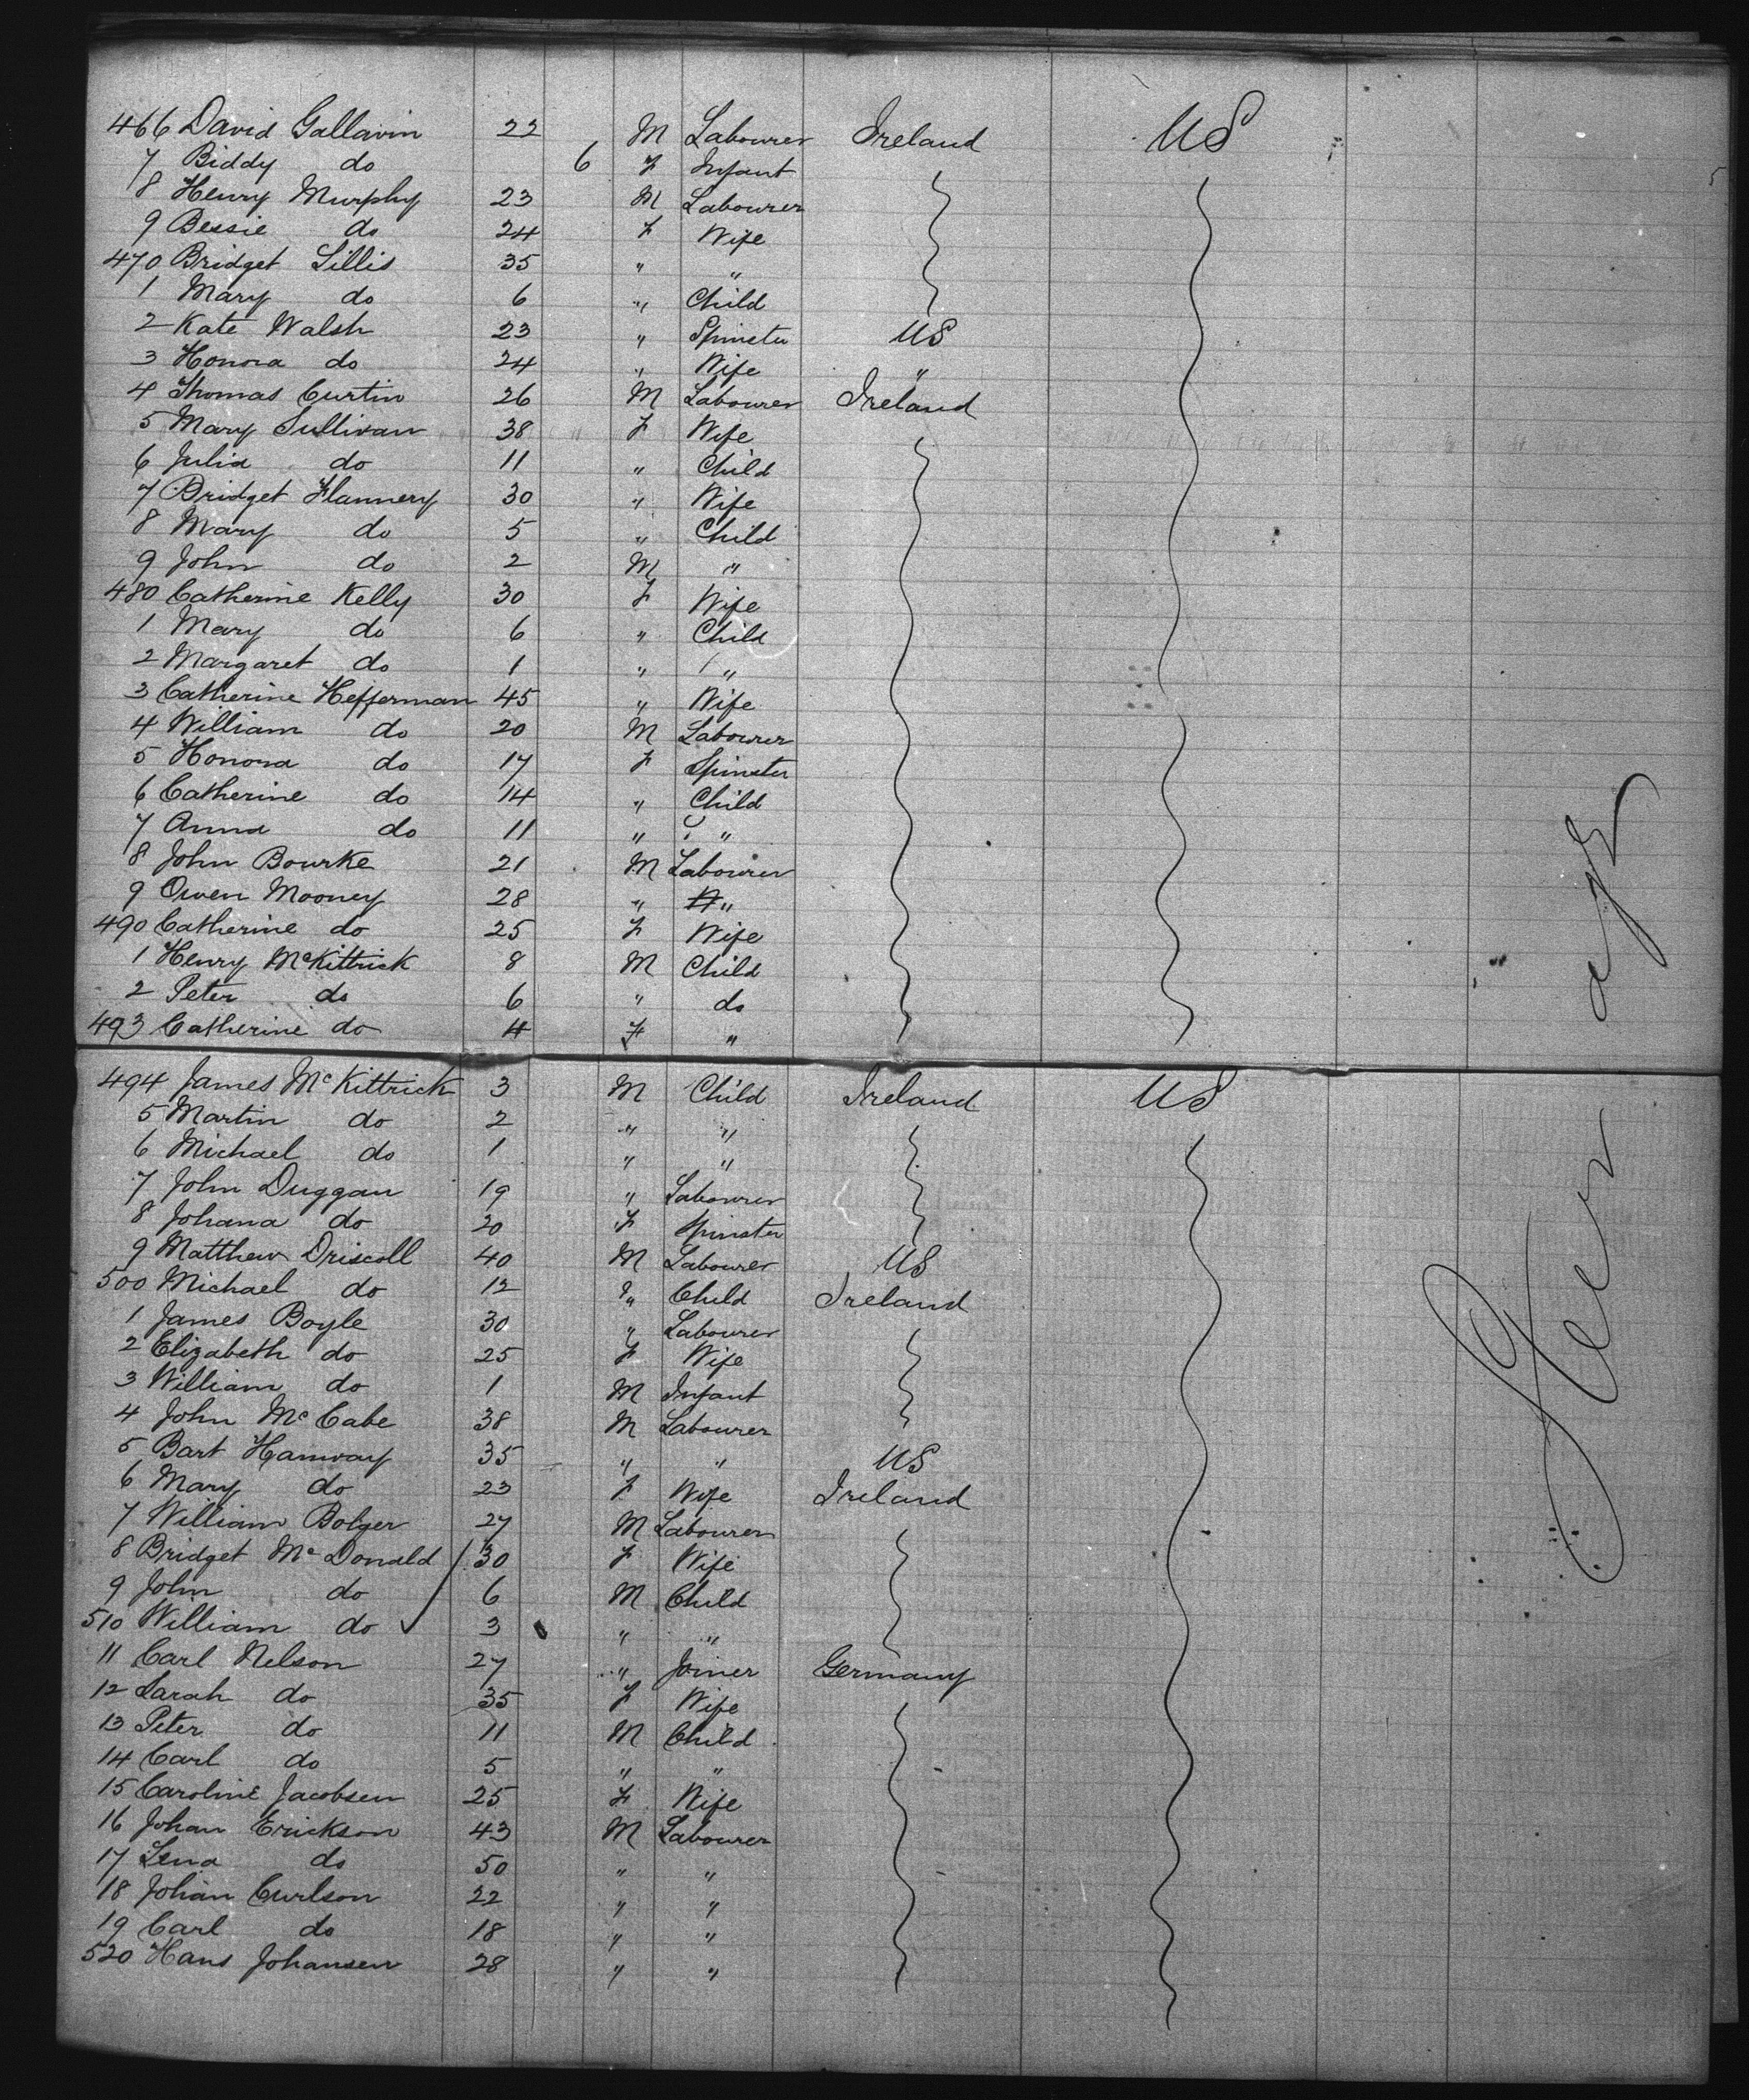 466 David Gallavin 22 M Labourer Ireland US
7 Biddy do 6 F Infant
8 Henry Murphy 23 M Labourer
9 Bessie do 24 F Wife
470 Bridget Lillis 35 " "
1 Mary do 6 " Child
2 Kate Walsh 23 " Spinster US
3 Honora do 24 " Wife "
4 Thomas Curtin 26 M Labourer Ireland
5 Mary Sullivan 38 F Wife
6 Julia do 11 " Child
7 Bridget Flannery 30 " Wife
8 Mary do 5 " Child
9 John do 2 M "
480 Catherine Kelly 30 F Wife
1 Mary do 6 " Child
2 Margaret do 1 " "
3 Catherine Hefferman 45 " Wife
4 William do 20 M Labourer
5 Honora do 17 F Spinster
6 Catherine do 14 " Child
7 Anna do 11 " "
8 John Bourke 21 M Labourer
9 Owen Mooney 28 " "
490 Catherine do 25 F Wife
1 Henry McKittrick 8 M Child
2 Peter do 6 " do
493 Catherine do 4 F "
494 James McKittrick 3 M Child Ireland US
5 Martin do 2 " "
6 Michael do 1 " "
7 John Duggan 19 " Labourer
8 Johana do 20 F Spinster
9 Matthew Driscoll 40 M Labourer US
500 Michael do 12 " Child Ireland
1 James Boyle 30 " Labourer
2 Elizabeth do 25 F Wife
3 William do 1 M Infant
4 John McCabe 38 M Labourer
5 Bart Hanway 35 " " US
6 Mary do 23 F Wife Ireland
7 William Bolger 27 M Labourer
8 Bridget McDonald 30 F Wife
9 John do 6 M Child
510 William do 3 " "
11 Carl Nelson 27 " Joiner Germany
12 Sarah do 35 F Wife
13 Peter do 11 M Child
14 Carl do 5 " "
15 Caroline Jacobsen 25 F Wife
16 Johan Erickson 43 M Labourer
17 Lena do 50 " "
18 Johan Curlson 22 " "
19 Carl do 18 " "
520 Hans Johansen 28 " "